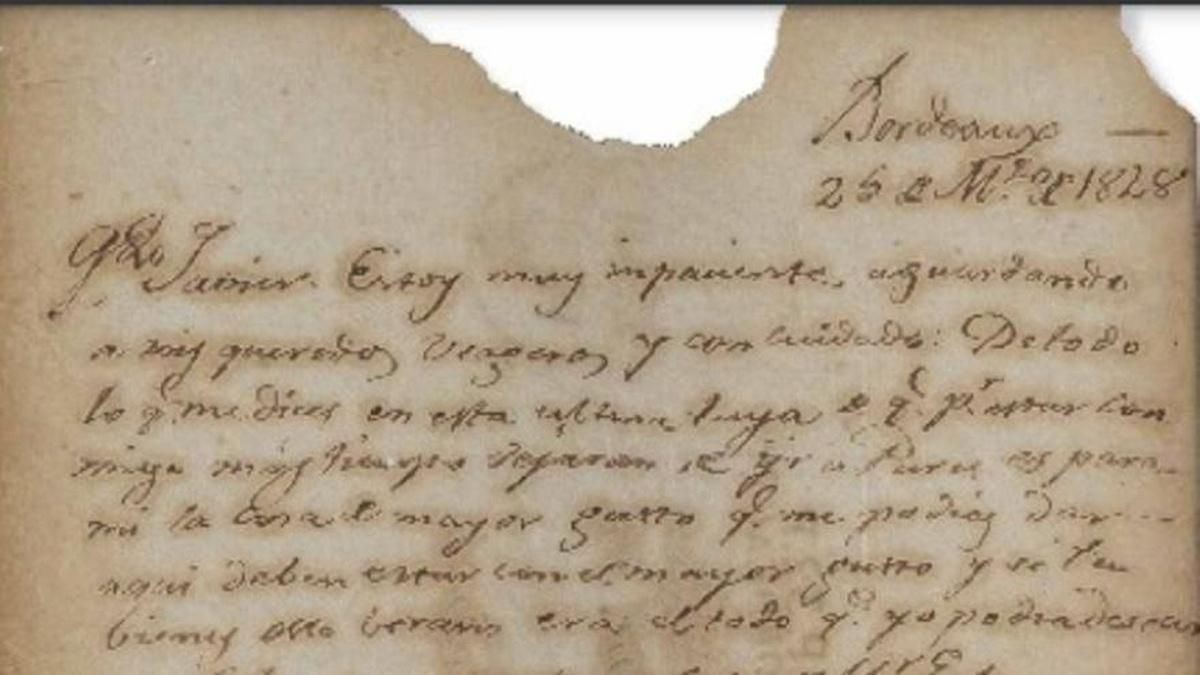 Bordeaux —
26 de Mzo de 1828
Qdo Javier. Estoy muy inpaciente, aguardando
a mis queridos viageros y con cuidado: De todo
lo q.e me dices en esta ultima tuya de q.e p.r estar con
migo mas tiempo dejaran de yr a Paris es para
mi la cosa de mayor gusto q.e me podias dar
aqui deben estar con el mayor gusto y si tu
bienes este verano era el todo q.e yo podia desear